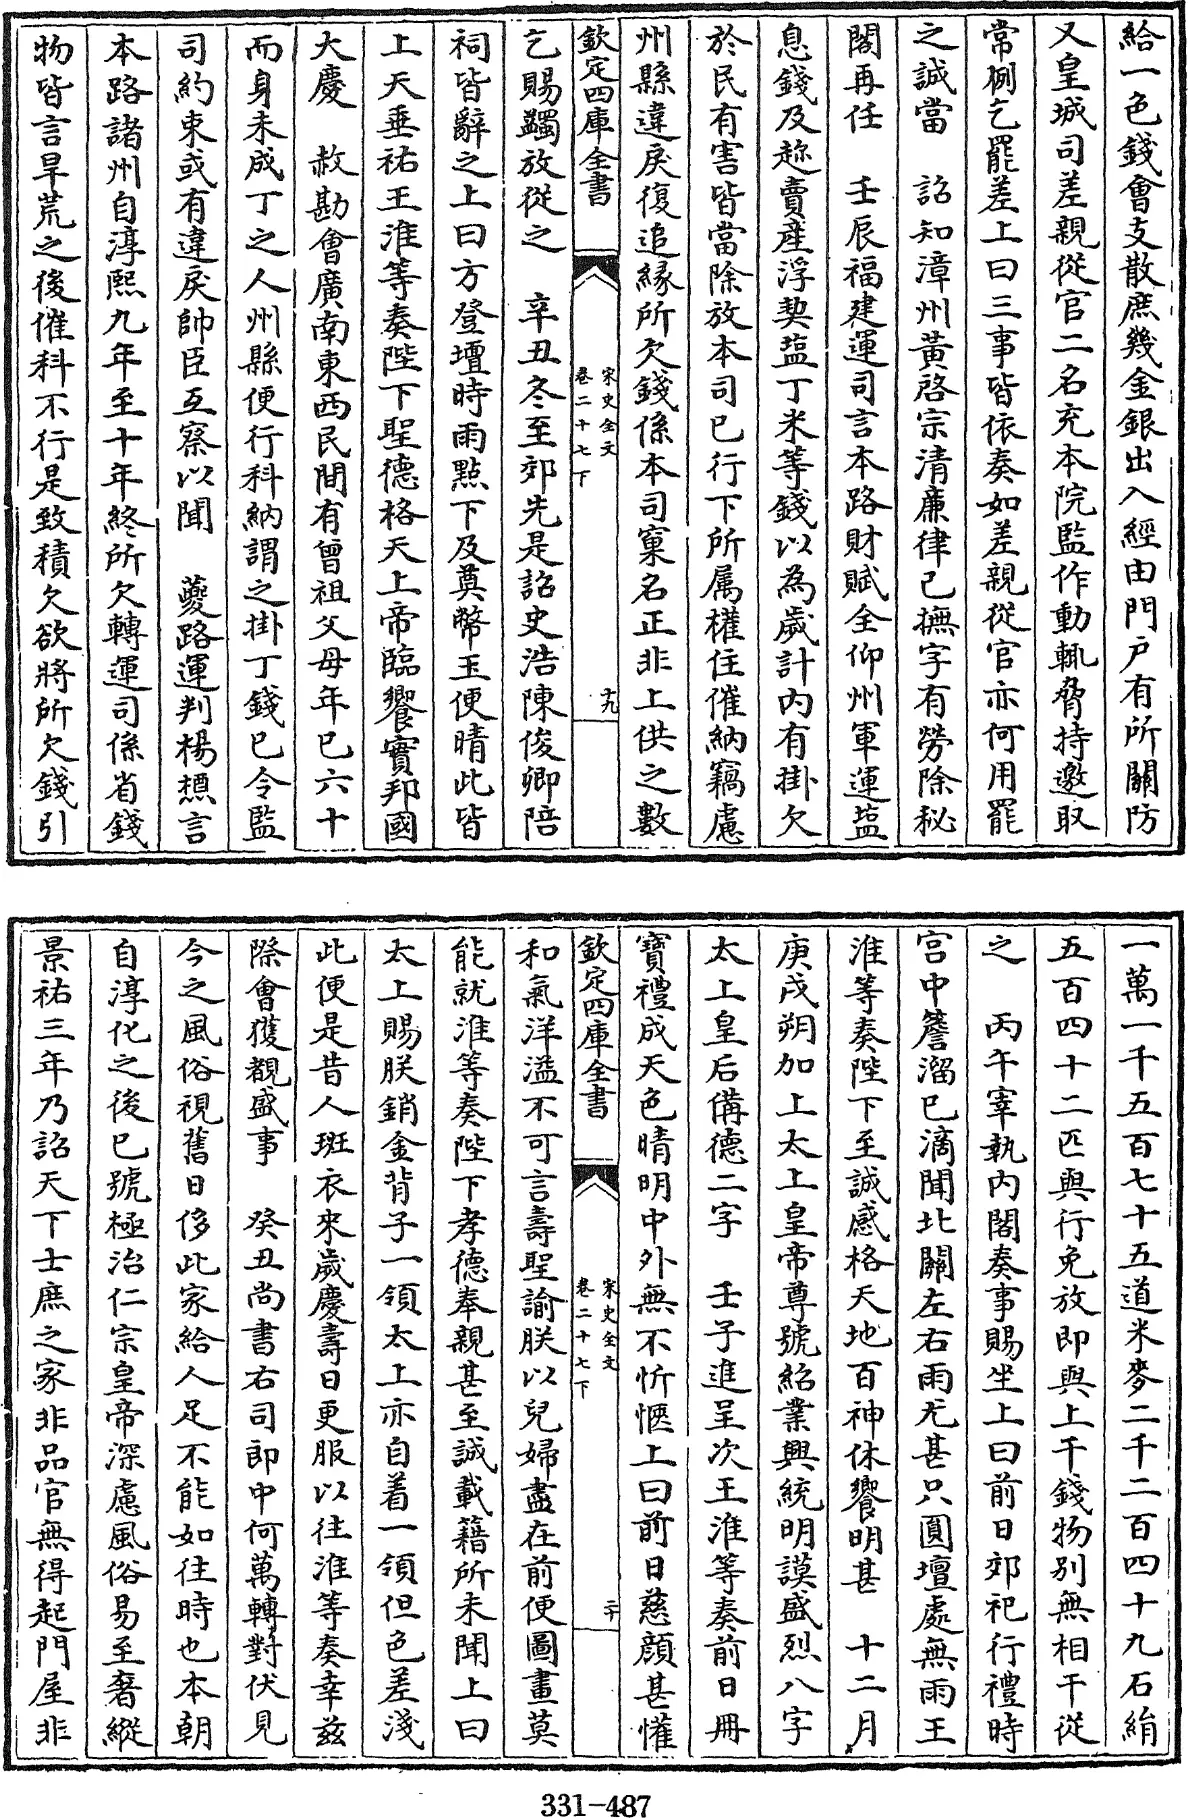 給一色錢會支散庶幾金銀出入經由門户有所關防
又皇城司差親從官二名充本院監作動輒脅持邀取
常例乞罷差上曰三事皆依奏如差親從官亦何用罷
之誠當　詔知漳州黄啓宗清廉律已撫字有勞除秘
閣再任　壬辰福建運司言本路財賦全仰州軍運盐
息錢及趂賣産浮契盐丁米等錢以為歲計内有掛欠
於民有害皆當除放本司已行下所属權住催納竊慮
州縣違戾復追緣所欠錢係本司窠名正非上供之數
欽定四庫全書　宋史全文卷二十七下　十九
乞賜蠲放從之　辛丑冬至郊先是詔史浩陳俊卿陪
祠皆辭之上曰方登壇時雨點下及奠幣玉便晴此皆
上天垂祐王淮等奏陛下聖德格天上帝臨饗實邦國
大慶　赦勘會廣南東西民間有曾祖父母年已六十
而身未成丁之人州縣便行科納謂之掛丁錢已令監
司約束或有違戾帥臣互察以聞　夔路運判楊櫄言
本路諸州自淳熙九年至十年終所欠轉運司係省錢
物皆言旱荒之後催科不行是致積欠欲將所欠錢引
一萬一千五百七十五道米麥二千二百四十九石絹
五百四十二匹與行免放即與上干錢物别無相干從
之　丙午宰執内閣奏事賜坐上曰前日郊祀行禮時
宫中簷溜已滴聞北關左右雨尤甚只圓壇處無雨王
淮等奏陛下至誠感格天地百神休饗明甚　十二月
庚戌朔加上太上皇帝尊號紹業興統明謨盛烈八字
太上皇后備德二字　壬子進呈次王淮等奏前日冊
寶禮成天色晴明中外無不忻愜上曰前日慈顔甚懽
欽定四庫全書　宋史全文卷二十七下　二十
和氣洋溢不可言壽聖諭朕以兒婦盡在前便圖畫莫
能就淮等奏陛下孝德奉親甚至誠載籍所未聞上曰
太上賜朕銷金背子一領太上亦自着一領但色差淺
此便是昔人斑衣來歲慶壽日更服以往淮等奏幸兹
際會獲覩盛事　癸丑尚書右司郎中何萬轉對伏見
今之風俗視舊日侈此家給人足不能如往時也本朝
自淳化之後已號極治仁宗皇帝深慮風俗易至奢縱
景祐三年乃詔天下士庶之家非品官無得起門屋非
331-487